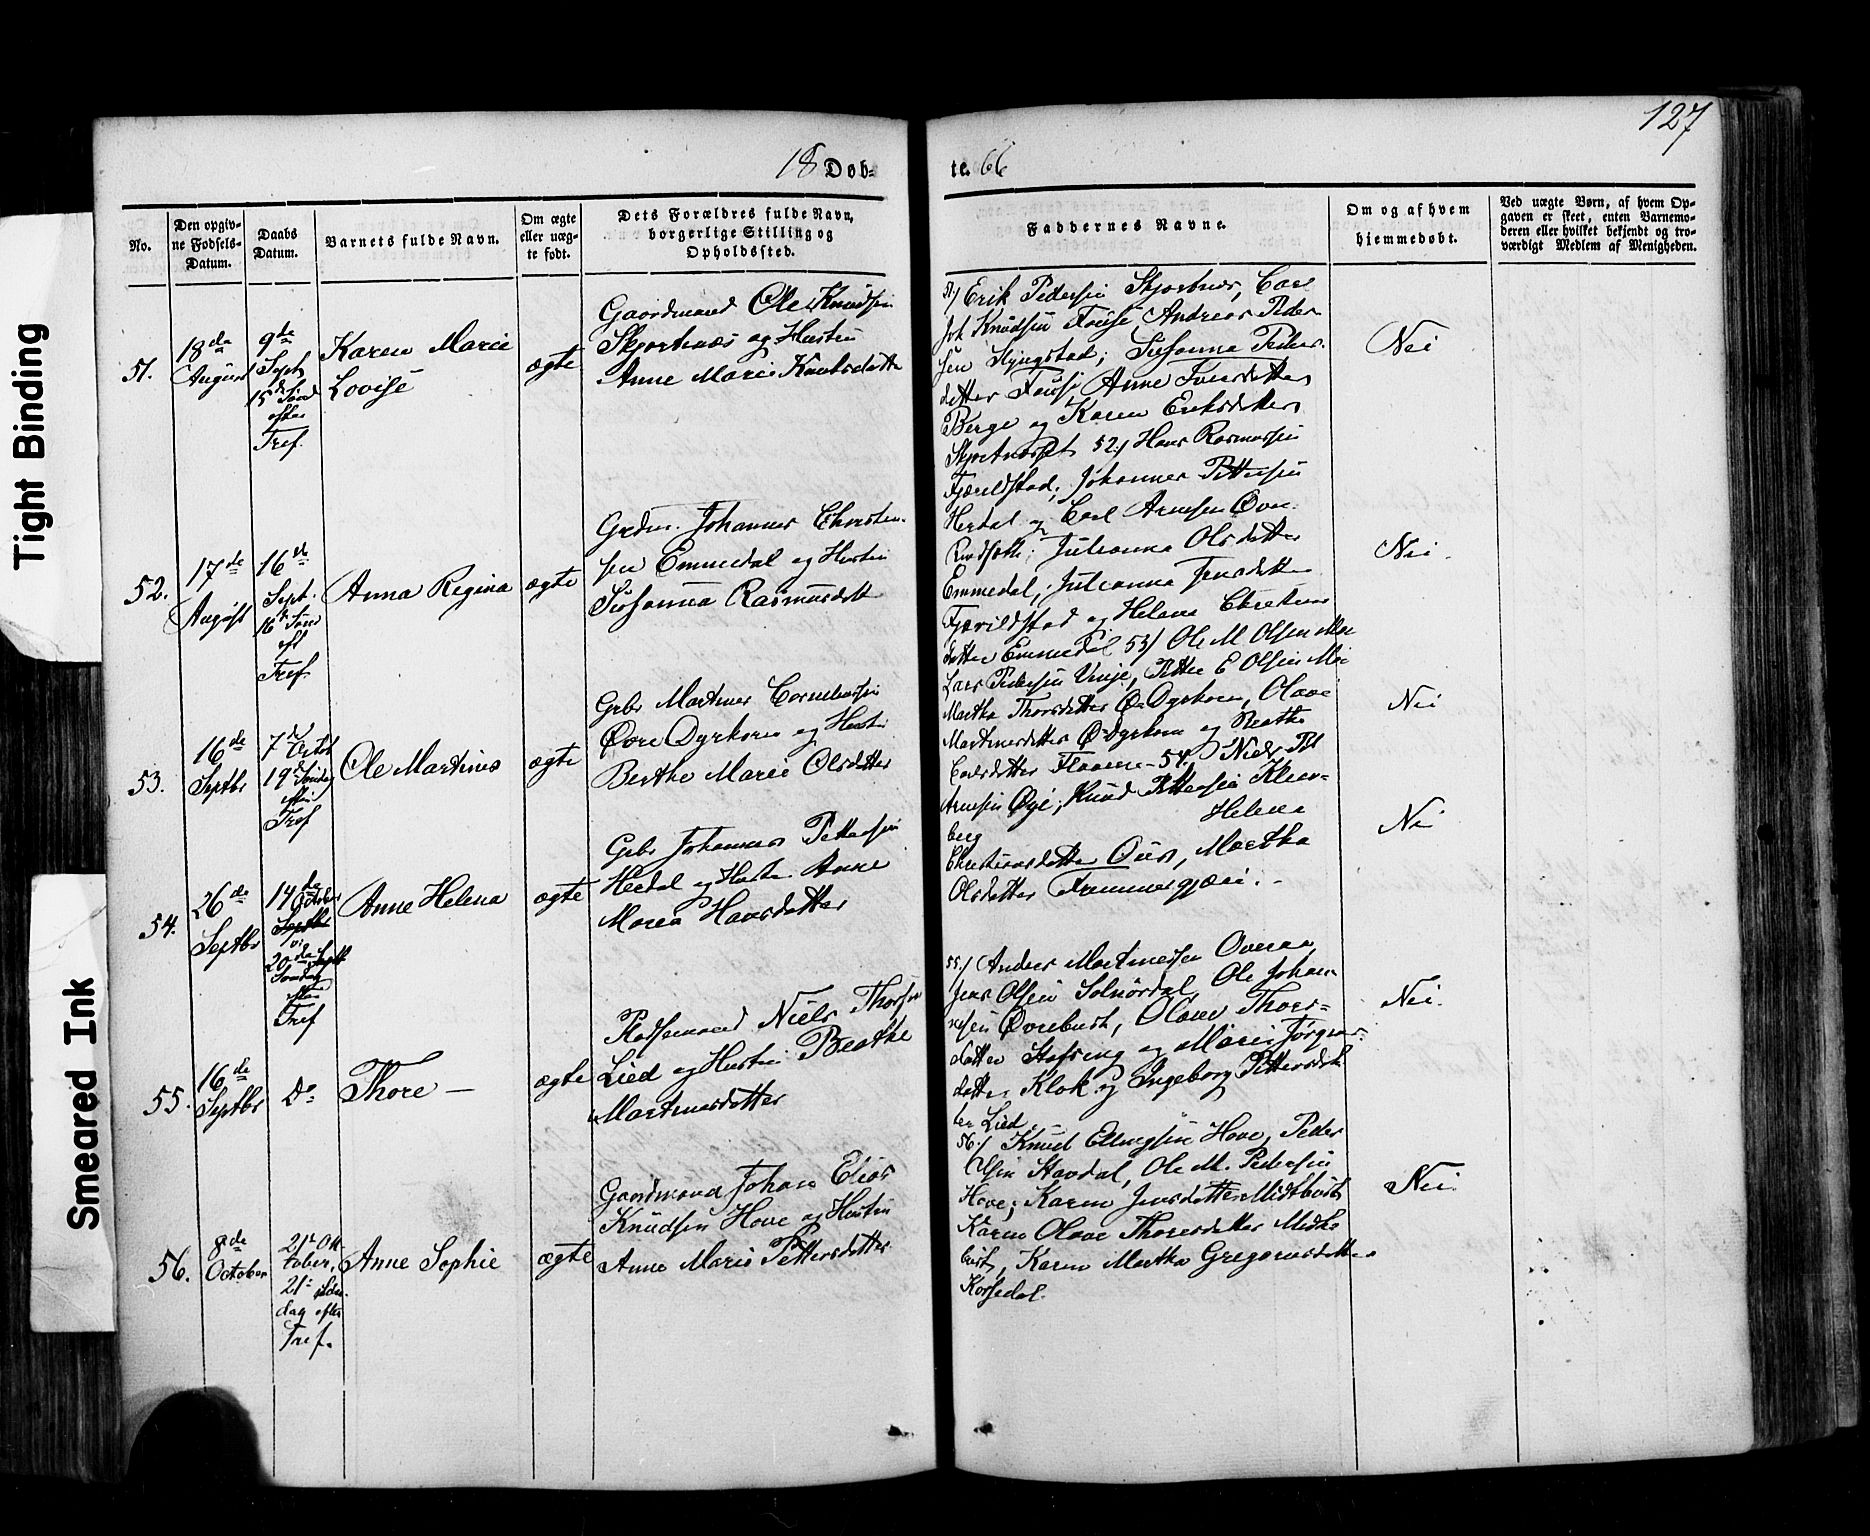 127
18 Døb-
te. 66
No.
Den opgiv-
ne Fødsels-
Datum.
Daabs
Datum.
Barnets fulde Navn.
Om ægte
eller uæg-
te født.
Dets Forældres fulde Navn,
borgerlige Stilling og
Opholdssted.
Faddernes Navne.
Om og af hvem
hjemmedøbt.
Ved uægte Børn, af hvem Op-
gaven er skeet, enten Barnemo-
deren eller hvilket bekjendt og tro-
værdigt Medlem af Menigheden.
51.
18de
August
9de
Sept
15d Sønd
efter
Tref.
Karen Marie
Lovise
ægte
Gaardmand Ole Knudsen
og Hustru
Anne Marie
51/ Erik Pedersen Carl
Joh Knudsen Andreas Peder
sen Susanna Peders
datter Anne
Berge og Karen Eriksdatter
Nei
52.
17de
August
16de
Sept.
16d Sønd
eft
Tref
Anna Regina
ægte
Grdm. Johannes Christen-
sen Emmedal og Hustru
Susanna Rasmusdatt
52/ Hans Rasmussen
Fjørildstad; Johannes Pettersen
Herdal og Carl Arnesen Øvre
Julianna Olsdatter
Emmedal; Julianna Jensdatter
Fjørildstad og Helena
datter Emmedal
Nei.
53.
16de
Septbr
7d Octob
19d Søndag
efter
Tref
Ole Martinus
ægte
Gbr Martinus Corneliussen
Øvre Dyrkorn og Hustru
Berthe Marie Olsdatter
53/ Ole M Olsen
Lars Pedersen Vinje, Petter E Olsen
Martha Thorsdatter Ø Dyrkorn, Olave
Martinusdatter Ø Dyrkorn og Beathe
Nei
54.
26de
Septbr
14de
October
Septbr
20de
Søndag
efter
Tref
Anne Helena
ægte
Gbr Johannes Pettersen
Herdal og Hustru Anne
Maria Hansdatter
54/ Niels Pet
Arnesen Øye, Knud Pettersen
berg Helena
Christiansdatter Martha
Olsdatter
Nei
55.
16de
Septbr
Do
Thore —
ægte
Pladsemand Niels Thorsen
Lied og Hustru Beathe
Martinusdatter
55/ Anders Martinussen Overaa
Jens Olsen Solnørdal, Ole Johan-
nesen Øvrebust, Olave Thors-
datter og Marie Jørgens-
datter Klok og Ingeborg Pettersdat
ter Lied.
Nei.
56.
8de
October
21d Oc-
tober,
21d Søn-
dag efter
Tref.
Anne Sophie
ægte
Gaardmand Johan Elias
Knudsen Hove og Hustru
Anne Marie Pettersdatter
56/ Knud Ellingsen Hove, Peder
Olsen Stavdal, Ole M. Pedersen
Hove; Karen Jensdatter Midtbust
Karen Olave Thoresdatter Midt-
bust, Karen Martha Gregoriusdatter
Korsedal.
Nei.
Tight Binding
Smeared Ink